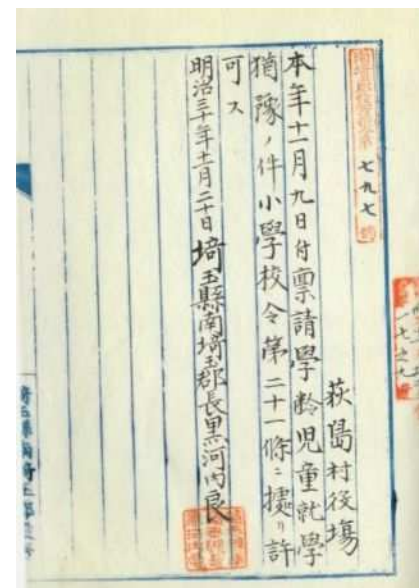 七九七
荻島村役場
本年十一月九日付稟請學齡児童就學
猶豫ノ件小學校令第二十一條ニ據リ許
可ス
明治三十年十一月二十日 埼玉縣南埼玉郡長黒河内良
埼玉縣南埼玉郡